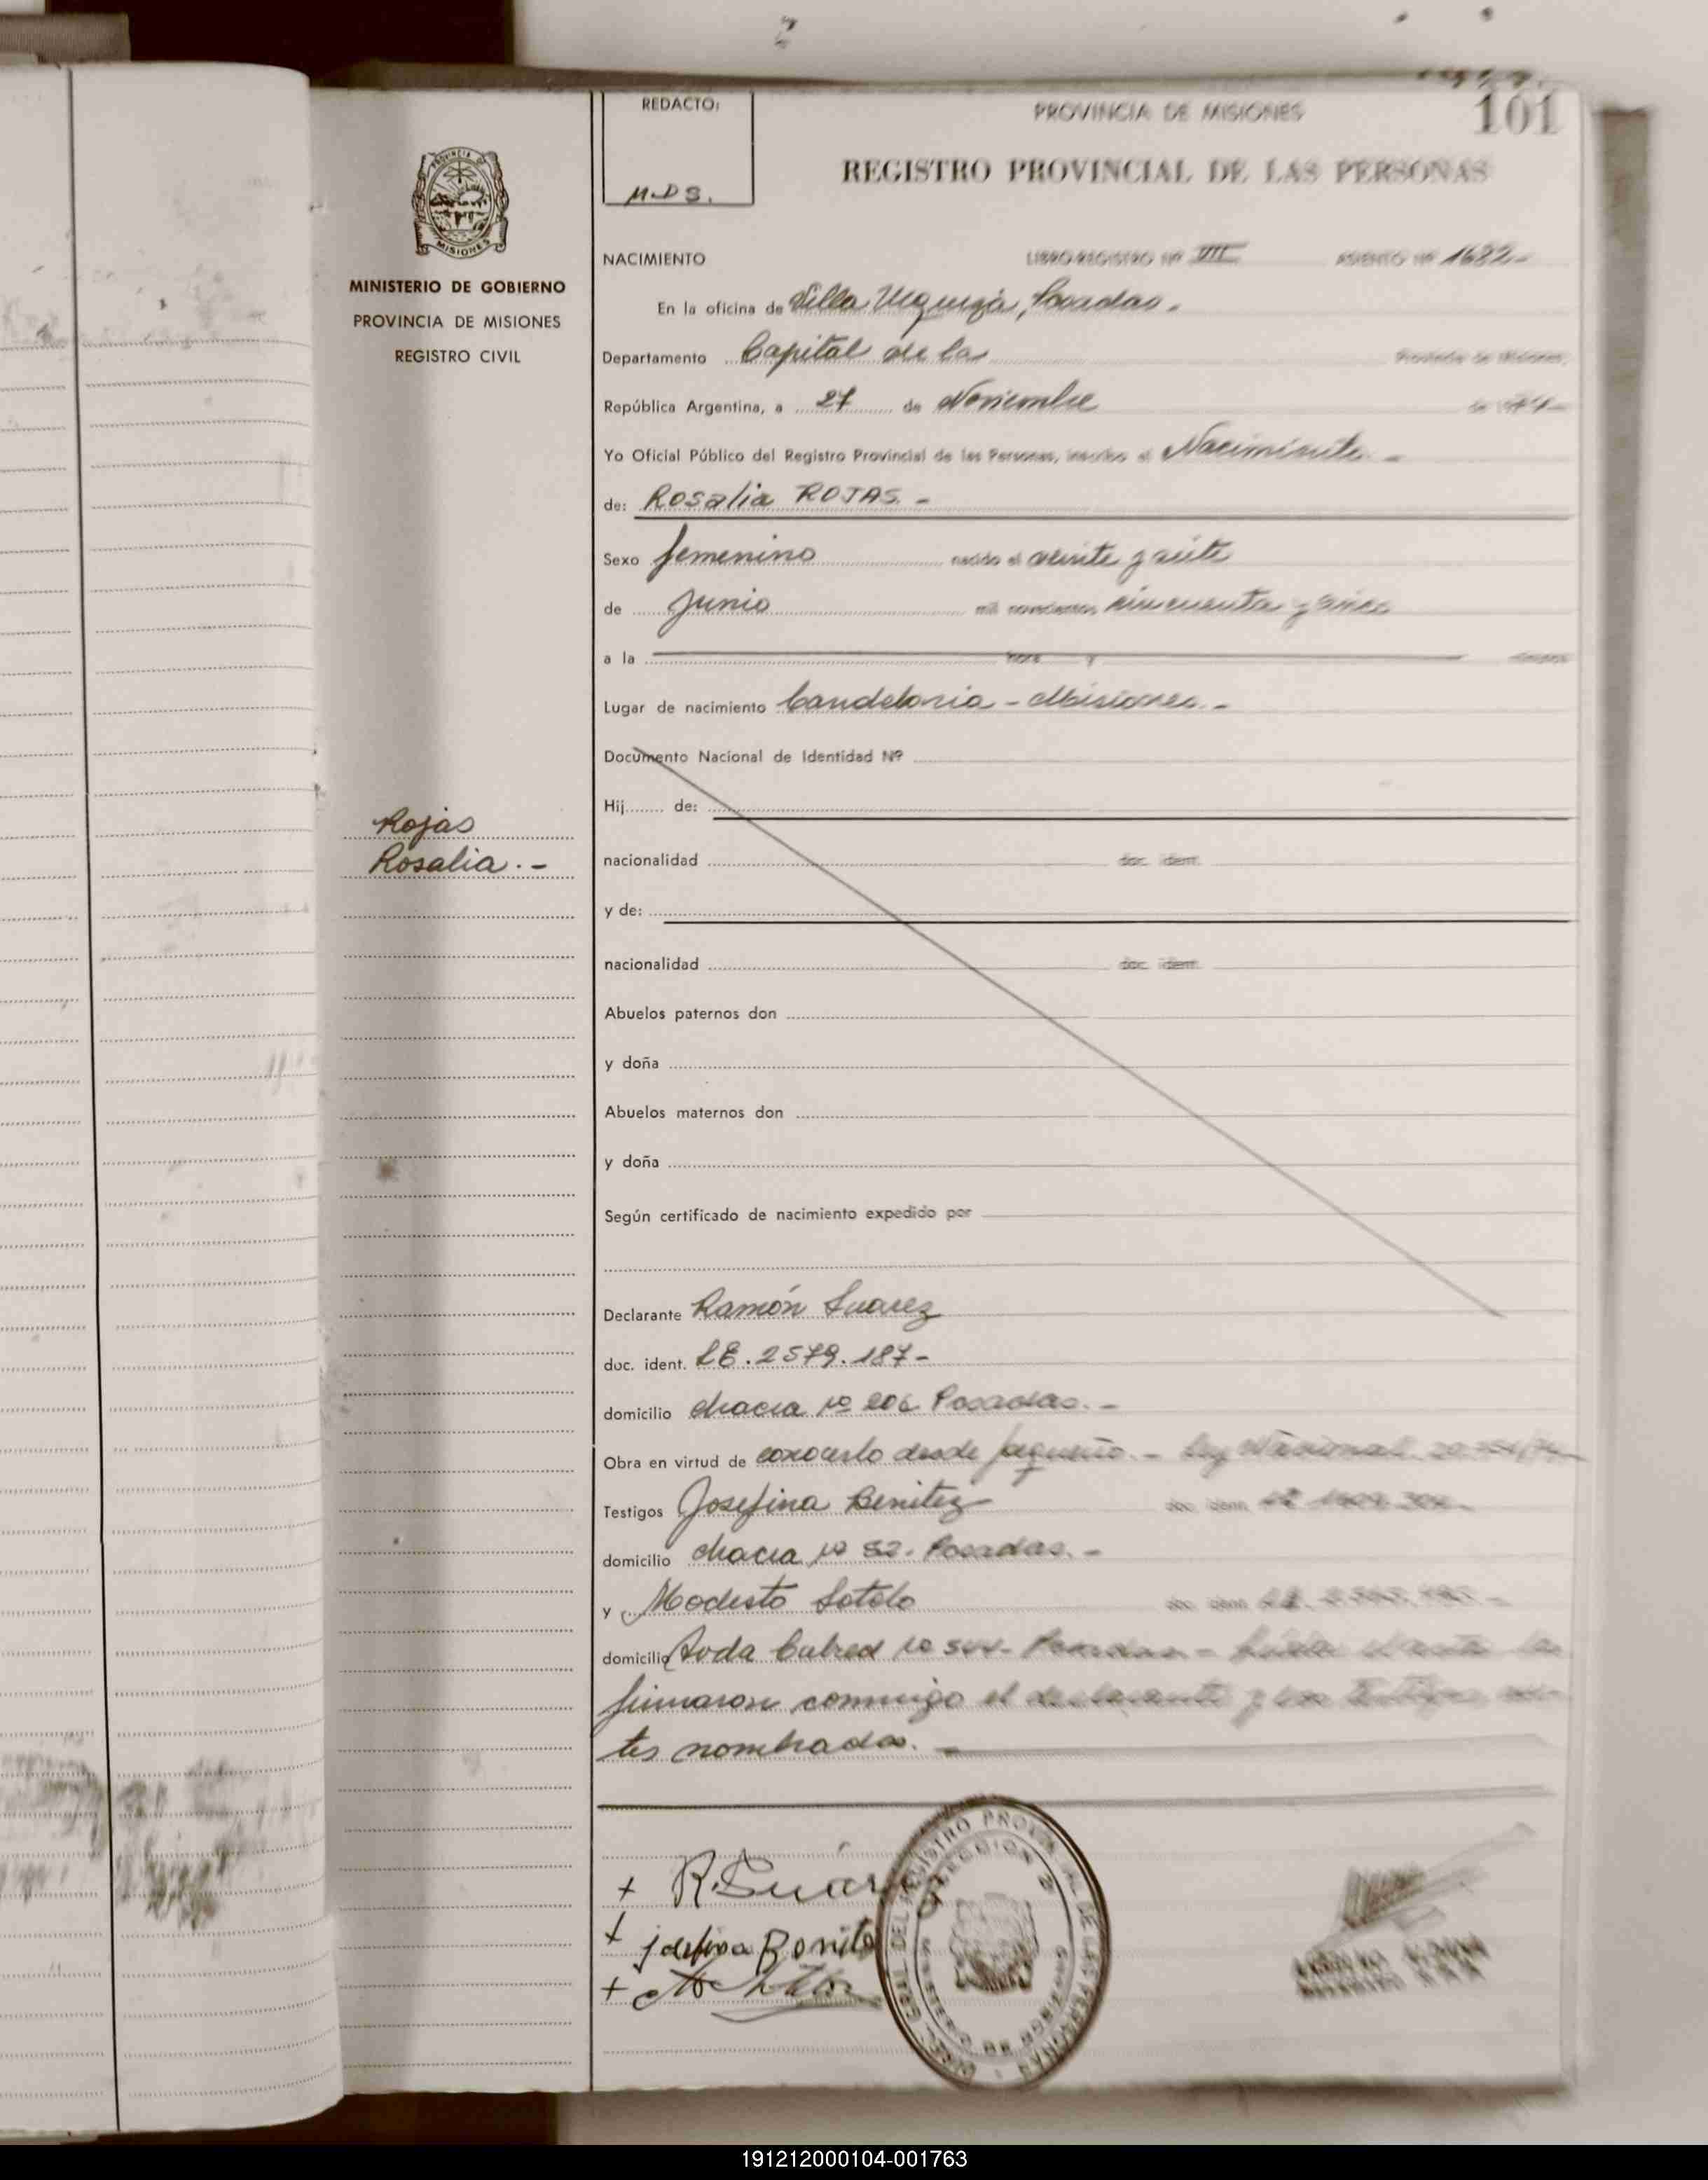 101
REDACTO:
M.D.S.
PROVINCIA DE MISIONES
REGISTRO PROVINCIAL DE LAS PERSONAS
PROVINCIA DE
MISIONES
MINISTERIO DE GOBIERNO
PROVINCIA DE MISIONES
REGISTRO CIVIL
Rojas
Rosalia.-
NACIMIENTO LIBRO REGISTRO Nº VIII ASIENTO Nº 1682-
En la oficina de Villa Urquiza, Posadas.
Departamento Capital de la Provincia de Misiones,
República Argentina, a 27 de Noviembre de 19
Yo Oficial Público del Registro Provincial de las Personas, inscribo el Nacimiento.-
de: Rosalia ROJAS.-
Sexo femenino nacido el veinte y siete
de Junio mil novecientos cincuenta y cinco
a la hora y
Lugar de nacimiento Candelaria - Misiones.-
Documento Nacional de Identidad Nº
Hij de:
nacionalidad doc. ident.
y de:
nacionalidad doc. ident.
Abuelos paternos don
y doña
Abuelos maternos don
y doña
Según certificado de nacimiento expedido por
Declarante Ramón Suarez
doc. ident. LE. 2579.187-
domicilio chacra Nº 206 Posadas.-
Obra en virtud de conocerlo desde pequeño.- Ley Nacional
Testigos Josefina Benitez doc. ident.
domicilio chacra Nº 52. Posadas.-
y Modesto Sotelo doc. ident. LE.
domicilio Avda Cabred Nº Posadas - Leida el acta la
firmaron conmigo el declarante y los testigos an-
tes nombrados.-
+ R. Suár
+ josefina Benite
+
191212000104-001763